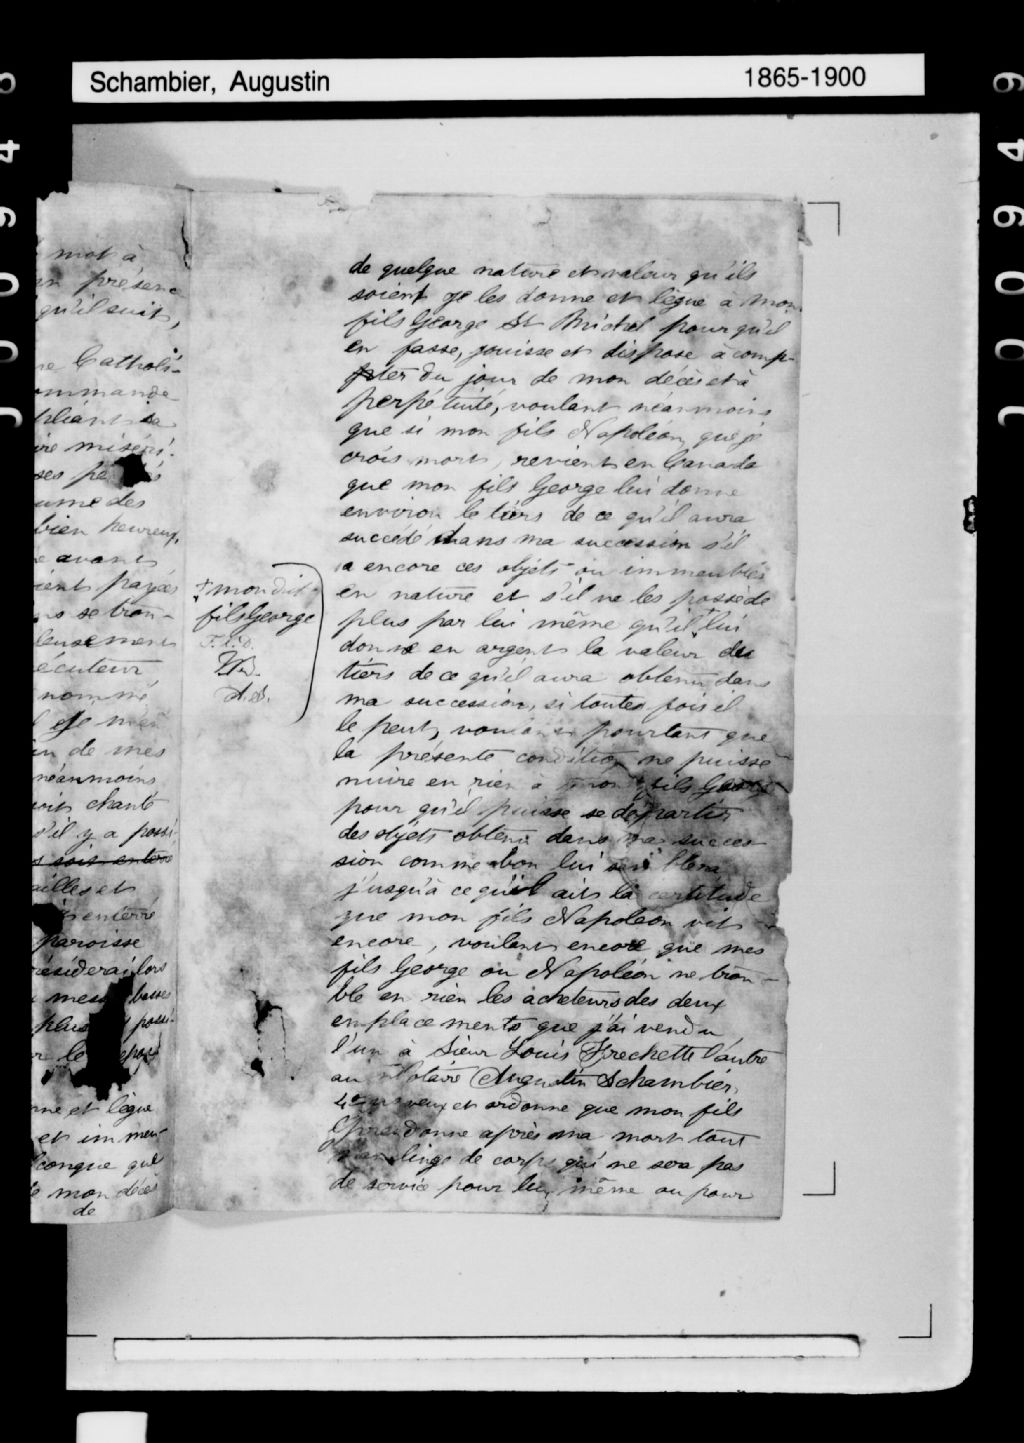 Schambier, Augustin 1865-1900
mot à
présenc
qu'il suit,
Catholi-
ommande
pliant sa
miséri-
ses pé
ume des
bien heureux,
avant
ient payées
se trou-
leusement
écuteur
nommé
de mes
néanmoins
chanté
s'il y a possi
s soit enterré
ailles et
enterré
paroisse
résiderai lors
messes basses
plus possi-
le repos
nne et lègue
et immeu-
conque que
mon décès
de
+ mon dit
fils George
A.S.
de quelque nature et valeur qu'ils
soient je les donne et lègue à mon
fils George St Michel pour qu'il
en fasse, jouisse et dispose à comp-
pter du jour de mon décès et à
perpétuité, voulant néanmoins
que si mon fils Napoléon, que je
crois mort, revient en Canada
que mon fils George lui donne
environ le tiers de ce qu'il aura
succédé dans ma succession s'il
a encore ces objets ou immeubles
en nature et s'il ne les possède
plus par lui même qu'il + lui
donne en argent la valeur du
tiers de ce qu'il aura obtenu dans
ma succession, si toutes fois il
le peut, voulant pourtant que
la présente condition ne puisse
nuire en rien à mon fils George
pour qu'il puisse se départir
des objets obtenu dans ma succes
sion comme bon lui semblera
j'usqu'à ce qu'il ait la certitude
que mon fils Napoléon vit
encore, voulant encore que mes
fils George ou Napoléon ne trou-
ble en rien les acheteurs des deux
emplacements que j'ai vendu
l'un à Sieur Louis Frechette l'autre
au Notaire Augustin Schambier,
4o veux et ordonne que mon fils
George donne après ma mort tout
mon linge de corps qui ne sera pas
de service pour lui même ou pour